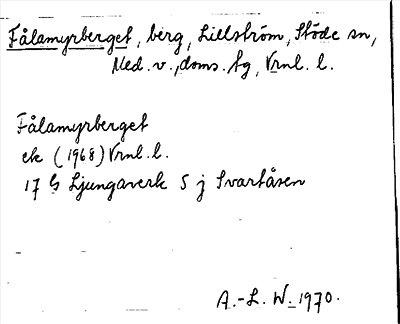 Fålamyrberget, berg, Lillström, Stöde sn,
Med. v., doms. fg, Vrnl. l.
Fålamyrberget
ek (1968) Vrnl. l.
17 G Ljungaverk 5 j Svartåsen
A.-L. W. 1970.